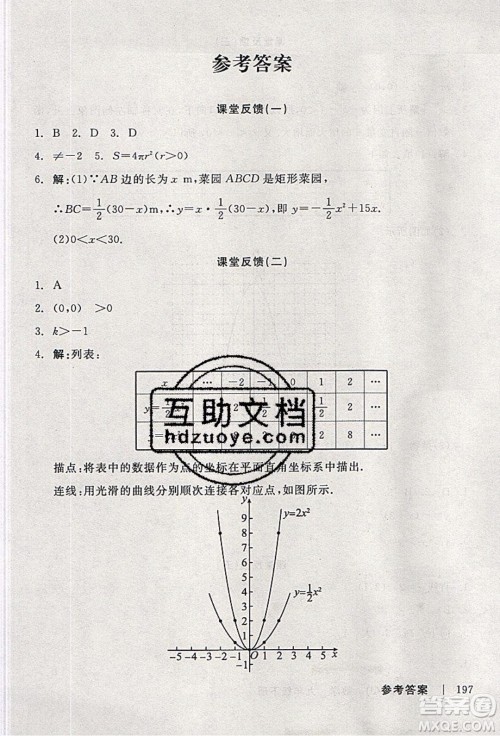 参考答案
课堂反馈(一)
1. B 2. D 3. D
4. ≠-2 5. S=4πr²(r>0)
6. 解:(1)∵AB边的长为x m,菜园ABCD是矩形菜园,
∴BC=1/2(30-x)m,∴y=1/2x·(30-x),即y=-1/2x²+15x.
(2)0<x<30.
课堂反馈(二)
1. A
2. (0,0) >0
3. k>-1
4. 解:列表:
x … -2 -1 0 1 2 …
1/2 2 …
2 8 …
互助文档
hdzuoye.com
描点:将表中的数据作为点的坐标在平面直角坐标系中描出.
连线:用光滑的曲线分别顺次连接各对应点,如图所示.
y
y=2x²
9
8
7
6
5
4
3
y=1/2x²
2
1
-5 -4 -3 -2 -1 O 1 2 3 4 5 x
参考答案 197